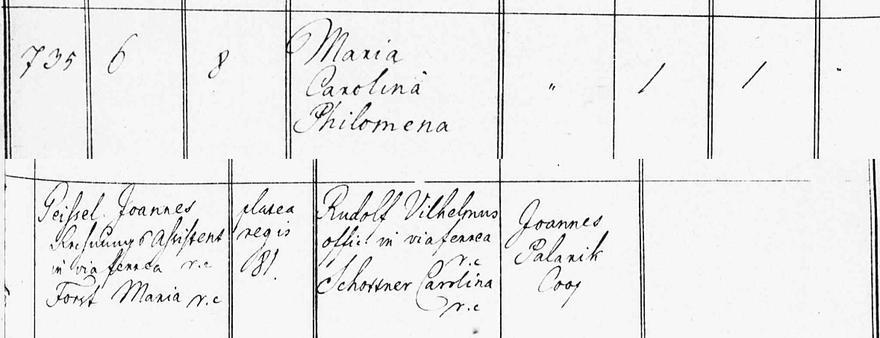 735 6 8 Maria
Carolina " / /
Philomena
Geissel Joannes
Rechnungs Assistent
in via ferrea r.c
Forst Maria r.c
platea
regis
81.
Rudolf Vilhelmus
offic: in via ferrea
r.c
Schortner Carolina
r.c
Joannes
Palarik
Coop